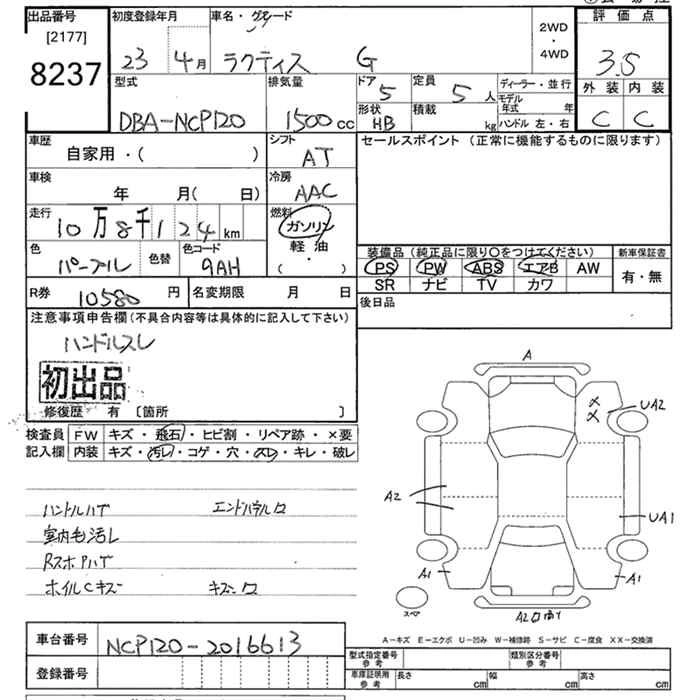 出品番号
[2177]
8237
初度登録年月
23 4月
車名・グレード
ラクティス G
2WD
・
4WD
評価点
3.5
外装 内装
C C
型式
DBA-NCP120
排気量
1500cc
ドア 5
形状 HB
定員 5人
積載 kg
ディーラー・並行
モデル年式 年
ハンドル 左・右
車歴
自家用・( )
シフト
AT
車検
年 月( 日)
冷房
AAC
走行
10万8千124km
燃料
ガソリン
軽油
( ・ )
色
パープル
色替
色コード
9AH
セールスポイント (正常に機能するものに限ります)
装備品(純正品に限り○をつけてください)
新車保証書
PS PW ABS エアB AW
SR ナビ TV カワ
有・無
R券 10580円
名変期限 月 日
後日品
注意事項申告欄(不具合内容等は具体的に記入して下さい)
ハンドルスレ
初出品
修復歴 有 〔箇所 〕
検査員 FW キズ・飛石・ヒビ割・リペア跡・×要
記入欄 内装 キズ・汚レ・コゲ・穴・スレ・キレ・破レ
A
UA2
A2
UA1
A1
A1
スペア
ハンドルハゲ
室内毛活L
Rスポハゲ
ホイルCキズ
A-キズ E-エクボ U-凹み W-補修跡 S-サビ C-腐食 XX-交換済
車台番号 NCP120-2016613
登録番号
型式指定番号 参考
類別区分番号 参考
車庫証明用 参考 長さ cm 幅 cm 高さ cm